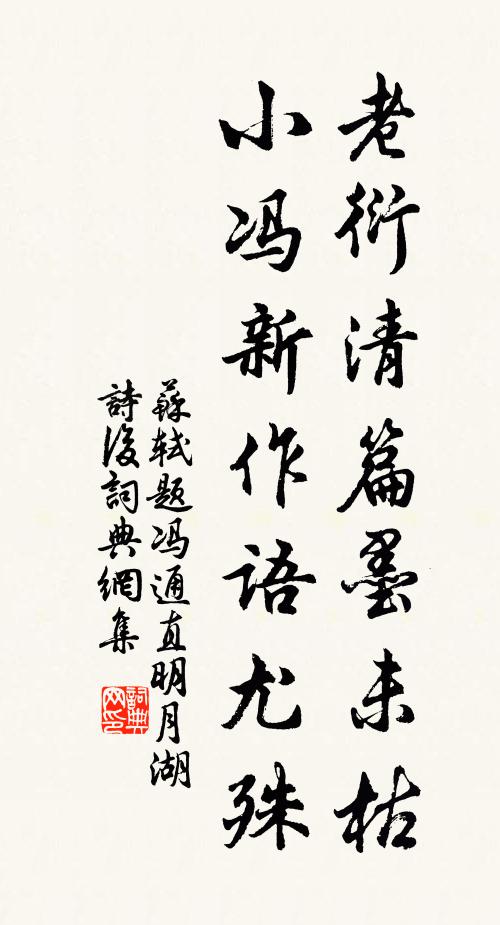 老衍清篇墨未枯
小冯新作语尤殊
蘇轼題冯通直明月湖
詩後詞典網集
詞典网印